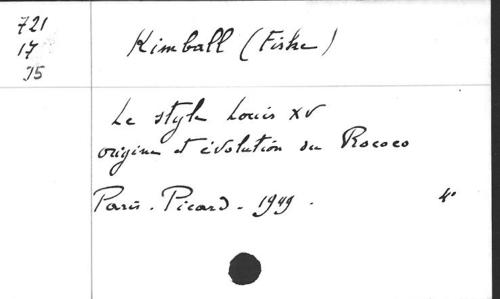 721
17
J5
Kimball (Fiske)
Le style Louis XV
origine et évolution du Rococo
Paris. Picard. 1949. 4°